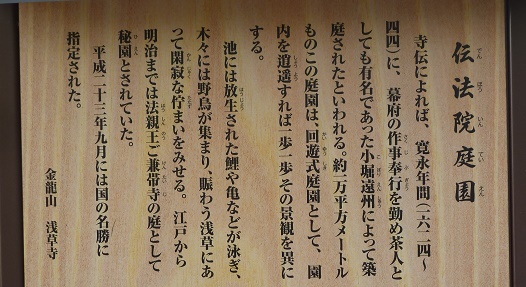 伝法院庭園
寺伝によれば、寛永年間(一六二四〜
四四)に、幕府の作事奉行を勤め茶人と
しても有名であった小堀遠州によって築
庭されたといわれる。約一万平方メートル
ものこの庭園は、回遊式庭園として、園
内を逍遥すれば一歩一歩その景観を異に
する。
池には放生された鯉や亀などが泳ぎ、
木々には野鳥が集まり、賑わう浅草にあ
って閑寂な佇まいをみせる。江戸から
明治までは法親王ご兼帯寺の庭として
秘園とされていた。
平成二十三年九月には国の名勝に
指定された。
金龍山 浅草寺